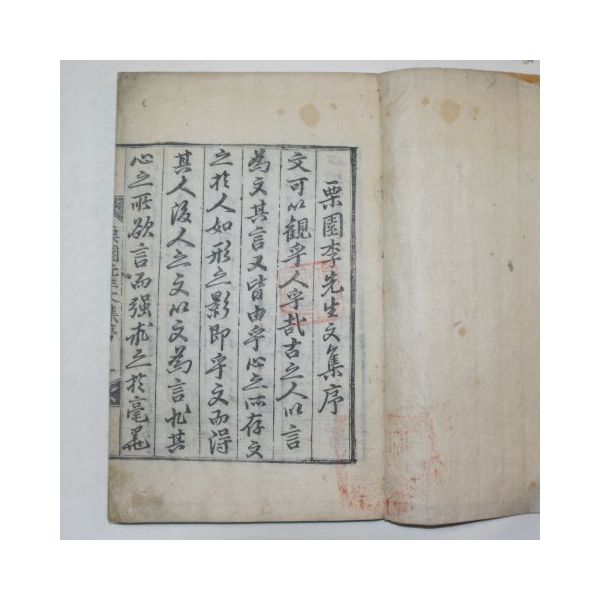 栗園李先生文集序
文可以觀乎人乎哉古之人以言
為文其言又皆由乎心之所存文
之於人如形之影即乎文而得
其人後人之文以文為言非其
心之所欲言而强求之於毫墨
栗園先生文集序